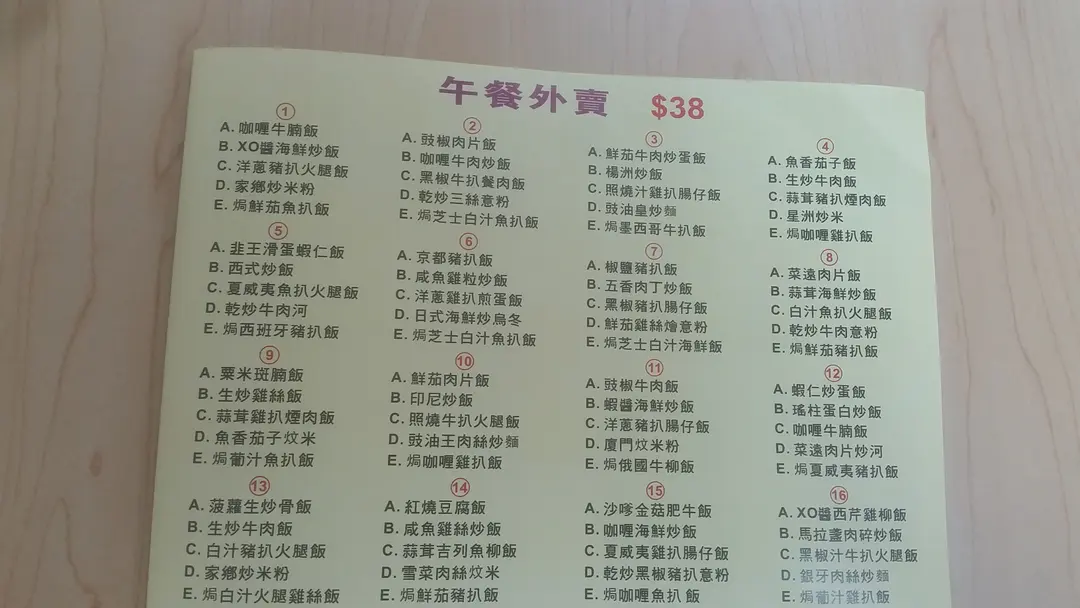 午餐外賣 $38
①
A. 咖喱牛腩飯
B. XO醬海鮮炒飯
C. 洋蔥豬扒火腿飯
D. 家鄉炒米粉
E. 焗鮮茄魚扒飯
②
A. 豉椒肉片飯
B. 咖喱牛肉炒飯
C. 黑椒牛扒餐肉飯
D. 乾炒三絲意粉
E. 焗芝士白汁魚扒飯
③
A. 鮮茄牛肉炒蛋飯
B. 楊洲炒飯
C. 照燒汁雞扒腸仔飯
D. 豉油皇炒麵
E. 焗墨西哥牛扒飯
④
A. 魚香茄子飯
B. 生炒牛肉飯
C. 蒜茸豬扒煙肉飯
D. 星洲炒米
E. 焗咖喱雞扒飯
⑤
A. 韭王滑蛋蝦仁飯
B. 西式炒飯
C. 夏威夷魚扒火腿飯
D. 乾炒牛肉河
E. 焗西班牙豬扒飯
⑥
A. 京都豬扒飯
B. 咸魚雞粒炒飯
C. 洋蔥雞扒煎蛋飯
D. 日式海鮮炒烏冬
E. 焗芝士白汁魚扒飯
⑦
A. 椒鹽豬扒飯
B. 五香肉丁炒飯
C. 黑椒豬扒腸仔飯
D. 鮮茄雞絲燴意粉
E. 焗芝士白汁海鮮飯
⑧
A. 菜遠肉片飯
B. 蒜茸海鮮炒飯
C. 白汁魚扒火腿飯
D. 乾炒牛肉意粉
E. 焗鮮茄豬扒飯
⑨
A. 粟米斑腩飯
B. 生炒雞絲飯
C. 蒜茸雞扒煙肉飯
D. 魚香茄子炆米
E. 焗葡汁魚扒飯
⑩
A. 鮮茄肉片飯
B. 印尼炒飯
C. 照燒牛扒火腿飯
D. 豉油王肉絲炒麵
E. 焗咖喱雞扒飯
⑪
A. 豉椒牛肉飯
B. 蝦醬海鮮炒飯
C. 洋蔥豬扒腸仔飯
D. 廈門炆米粉
E. 焗俄國牛柳飯
⑫
A. 蝦仁炒蛋飯
B. 瑤柱蛋白炒飯
C. 咖喱牛腩飯
D. 菜遠肉片炒河
E. 焗夏威夷豬扒飯
⑬
A. 菠蘿生炒骨飯
B. 生炒牛肉飯
C. 白汁豬扒火腿飯
D. 家鄉炒米粉
E. 焗白汁火腿雞絲飯
⑭
A. 紅燒豆腐飯
B. 咸魚雞絲炒飯
C. 蒜茸吉列魚柳飯
D. 雪菜肉絲炆米
E. 焗鮮茄豬扒飯
⑮
A. 沙嗲金菇肥牛飯
B. 咖喱海鮮炒飯
C. 夏威夷雞扒腸仔飯
D. 乾炒黑椒豬扒意粉
E. 焗咖喱魚扒飯
⑯
A. XO醬西芹雞柳飯
B. 馬拉盞肉碎炒飯
C. 黑椒汁牛扒火腿飯
D. 銀牙肉絲炒麵
E. 焗葡汁雞扒飯